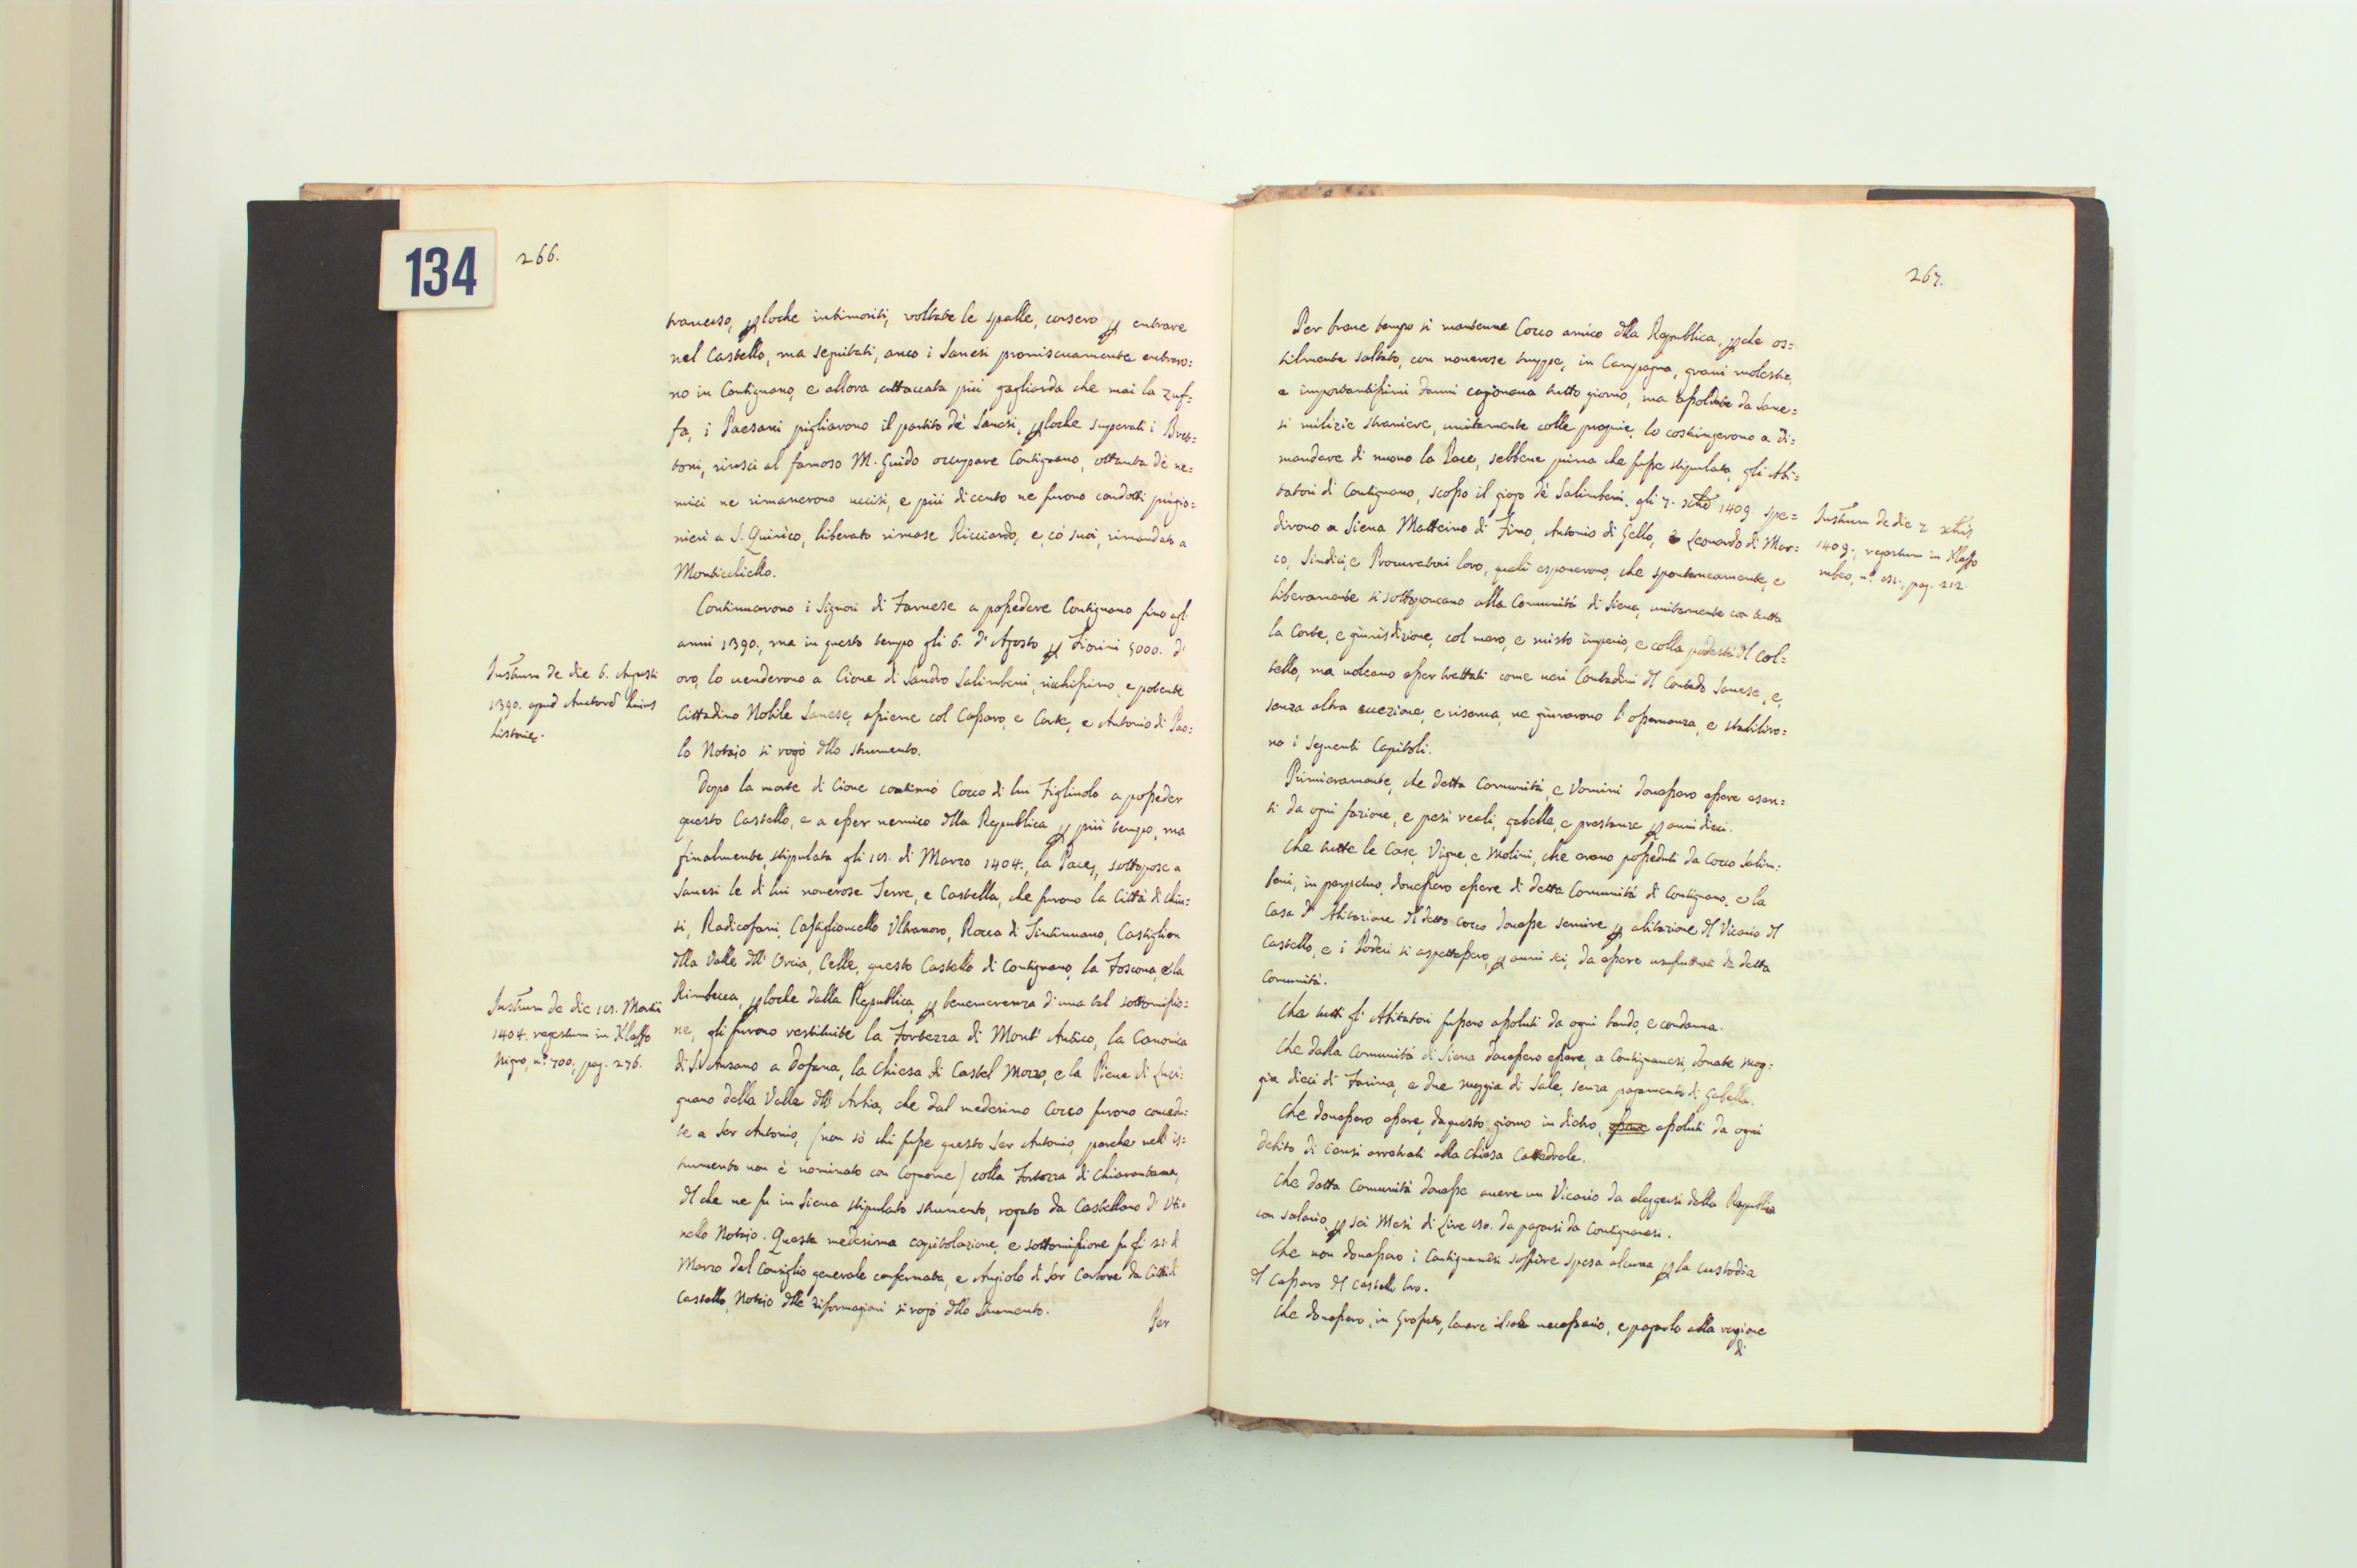 134
266.
trauerso, ꝑloche intimoriti, voltate le spalle, corsero ꝑ entrare
nel Castello, ma seguitati, anco i Sanesi promiscuamente entraro=
no in Contignano, e allora attaccata più gagliarda che mai la zuf=
fa, i Paesani pigliarono il partito dè Sanesi, ꝑloche superati i Bret=
toni, riuscì al famoso M. Guido occupare Contignano, ottanta dè ne=
mici ne rimanerono uccisi, e più di cento ne furono condotti prigio=
nieri a S. Quirico, liberato rimase Ricciardo, e có suoi, rimandato a
Monticchiello.
Continuarono i Signori di Farnese a possedere Contignano fino agl'
anni 1390., ma in questo tempo gli 6. d'Agosto ꝑ Fiorini 5000. d'
oro, lo uenderono a Cione di Sandro Salimbeni, ricchissimo, e potente
Cittadino Nobile Sanese, assieme col Cassaro, e Corte, e Antonio di Pao=
lo Notaio si rogò dllo strumento.
Instrum de die 6. Augusti
1390. apud Auctorē huius
historię.
Dopo la morte di Cione continuò Cocco di lui Figliuolo a posseder
questo Castello, e a esser nemico dlla Republica ꝑ più tempo, ma
finalmente, stipulata gli 15. di Marzo 1404., la Pace, sottopose a
Sanesi le di lui nouerose Terre, e Castella, che furono la Città di Chiu=
si, Radicofani, Castiglioncello Vltranoro, Rocca di Tintinnano, Castiglion
dlla Valle dll' Orcia, Celle, questo Castello di Contignano, la Foscona, e la
Rimbecca, ꝑloche dalla Republica, ꝑ benemerenza d'una tal sottomissio=
ne, gli furono restituite la Fortezza di Mont' Antico, la Canonica
di S. Ansano a Dofana, la Chiesa di Castel Mozzo, e la Pieue di Luci=
gnano della Valle dll' Arbia, che dal medesimo Cocco furono concedu=
te a Ser Antonio, (non sò chi fusse questo Ser Antonio, perche nell' is=
trumento non è nominato con Cognome) colla Fortezza di Chiarantana,
dl che ne fu in Siena stipulato strumento, rogato da Castellano d' Vti=
nello Notaio. Questa medesima capitolazione, e sottomissione fu gli 21. di
Marzo dal Consiglio generale confermata, e Angiolo di Ser Cortone da Città di
Castello, Notaio dlle Riformagioni si rogò dllo strumento.
Per
Instrum de die 15. Martii
1404. regestum in Klaffo
Nigro, n.º 700., pag. 276.
267.
Per breue tempo si mantenne Cocco amico dlla Republica, ꝑche os=
tilmente saltato, con nouerose truppe, in Campagna, graui molestie,
e importantissimi danni cagionaua tutto giorno, ma assoldate da Sane=
si milizie straniere, unitamente colle proprie, lo costringerono a di=
mandare di nuouo la Pace, sebbene prima che fusse stipulata, gli Abi=
tatori di Contignano, scosso il giogo dè Salimbeni, gli 7. Xbre 1409. spe=
dirono a Siena Matteino di Fino, Antonio di Gello, e Leonardo di Mar=
co, Sindici, e Procuratori loro, quali esponerono, che spontaneamente, e
liberamente si sottoponeano alla Comunità di Siena, unitamente con tutta
la Corte, e giurisdizione, col mero, e misto imperio, e colla podestà dl Cas=
tello, ma uoleano esser trattati come ueri Contadini dl Contado Sanese, e,
senza altra eccezione, e riserua, ne giurarono l'osseruanza, e stabiliro=
no i seguenti Capitoli.
Instrum de die 7. Xbris
1409., regestum in Klaffo
rubeo, n.º 151., pag. 212.
Primieramente, che detta Comunità, e Vomini douessero essere esen=
ti da ogni fazione, e pesi reali, gabelle, e prestanze ꝑ anni dieci.
Che tutte le Case, Vigne, e Molini, che erano posseduti da Cocco Salim=
beni, in perpetuo, douessero essere di detta Comunità di Contignano, e la
Casa d'Abitazione dl detto Cocco douesse seruire ꝑ abitazione dl Vicario dl
Castello, e i Poderi si aspettassero, ꝑ anni sei, da essere usufruttati da detta
Comunità.
Che tutti gli Abitatori fussero assoluti da ogni bando, e condanna.
Che dalla Comunità di Siena douessero essere, a Contignanesi, donate mog=
gia dieci di Farina, e due moggia di Sale, senza pagamento di Gabella.
Che douessero essere, da questo giorno in dietro, essere assoluti da ogni
debito di Censi arretrati alla Chiesa Cattedrale.
Che detta Comunità douesse auere un Vicario da eleggersi dalla Republica
con salario, ꝑ sei Mesi di Lire 150. da pagarsi da Contignanesi.
Che non douessero i Contignanesi soffrire spesa alcuna ꝑ la custodia
dl Cassaro dl Castello loro.
Che douessero, in Grosseto, leuare il sale necessario, e pagarlo alla ragione
di